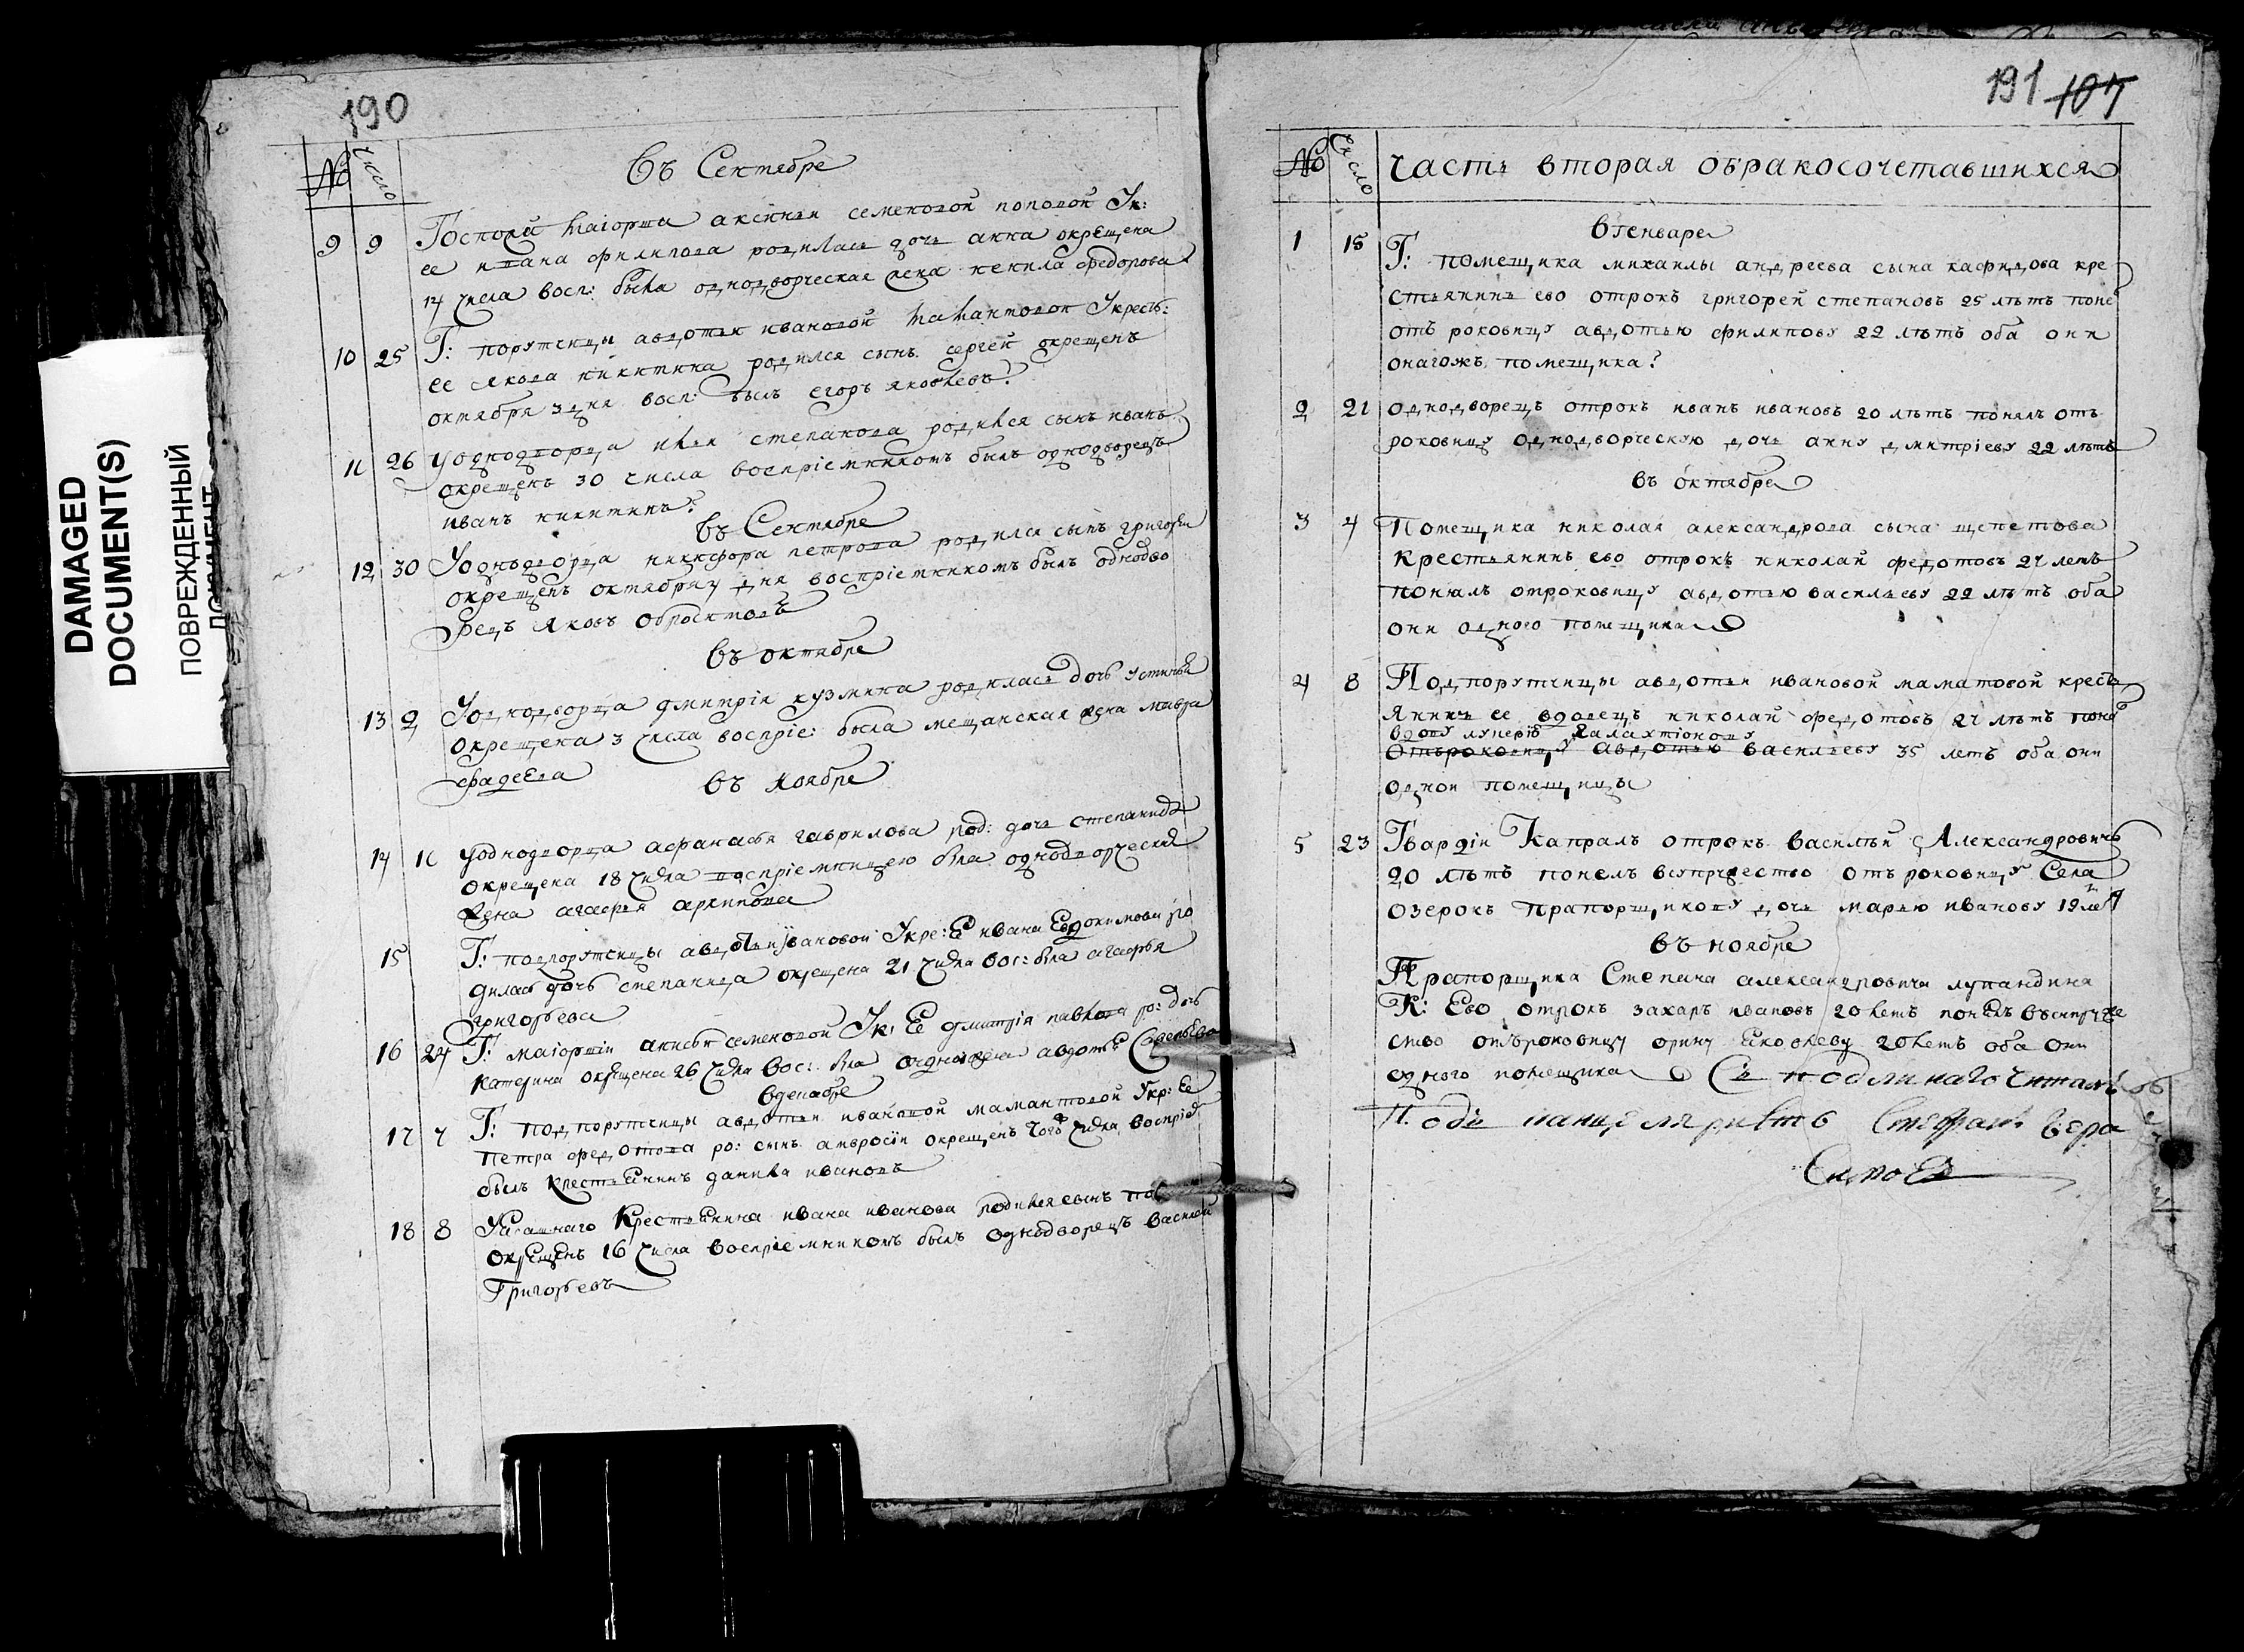 DAMAGED
DOCUMENT(S)
ПОВРЕЖДЕННЫЙ
ДОКУМЕНТ
190
№ число
Въ Сентябре
9 9 Госпожи маiорши аксиньи семеновой поповой Ук:
ее ивана филипова родилась дочь анна окрещена
14 числа восп: была однодворческая жена ненила федорова
10 25 Г: порутчицы авдотьи ивановой мамантовой Укресть:
ее якова никитина родился сынъ сергей окрещенъ
октября 3 дня восп: былъ егоръ яковлевъ
11 26 Уоднодворца ильи степанова родился сынъ иванъ
окрещенъ 30 числа воспрiемникомъ былъ однодворецъ
иванъ никитинъ
въ Сентябре
12 30 Уоднодворца никифора петрова родился сынъ григорей
окрещенъ октября 4 дня воспрiемникомъ былъ однодво
рецъ яковъ
въ октябре
13 2 Уоднодворца дмитрiя кузмина родилась дочь устинья
окрещена 3 числа воспрiе: была мещанская жена мавра
фадеева
въ Ноябре
14 11 Уоднодворца афанасья гаврилова род: дочь степанида
окрещена 18 числа воспрiемницею была однодворческая
жена агафья архипова
15 Г: подпорутчицы авдотьи ивановой Укре: Е ивана Евдокимова ро
дилась дочь степанида окрещена 21 числа вос: была агафья
григорьева
16 24 Г: маiоршии аксиньи семеновой Ук: Ее дмитрiя павлова ро: дочь
катерина окрещена 26 числа вос: была жена авдотья Савельева
вдекабре
17 7 Г: подпорутчицы авдотьи ивановой мамантовой Укр: Ее
петра федотова ро: сынъ амвросiи окрещенъ того числа воспрiе
былъ крестьЕнинъ данила ивановъ
18 8 КрестьЕнина ивана иванова родился сынъ
окрещенъ 16 числа воспрiемникомъ былъ однодворецъ василей
Григорьевъ
191 107
№ Число часть вторая обракосочетавшихся
вгенваре
1 15 Г: помещика михаилы андреева сына кафидова кре
стьянинъ ево отрокъ григорей степановъ 25 лѣтъ поне
отъ роковицу авдотью филипову 22 лѣтъ оба они
онагожъ помещика
2 21 однодворецъ отрокъ иванъ ивановъ 20 лѣтъ понялъ отъ
роковицу однодворческую дочь анну дмитрiеву 22 лѣтъ
въ октябре
3 4 Помещика николая александрова сына щепетова
крестьянинъ ево отрокъ николай федотовъ 27 летъ
понялъ отроковицу авдотью васильеву 22 лѣтъ оба
они одного помещика
4 8 Подпорутчицы авдотьи ивановой маматовой кресть
янинъ ее вдовецъ николай федотовъ 27 лѣтъ поня
вдову лукерiю Галахтiонову
Отъроковицу авдотью васильеву 35 летъ оба они
одной помещицы
5 23 Гвардiи Капралъ отрокъ василѣй Александровичь
20 лѣтъ понелъ всупружество отъ роковицу Села
озерокъ прапорщикову дочь марью иванову 19 ле
въ ноябре
Прапорщика Степана александровича лупандина
К: Ево отрокъ захаръ ивановъ 20 летъ понелъ въсупруже
ство отъроковицу орину яковлеву 20 летъ оба они
одного помещика Съ подлиннаго читалъ
Подъ канцеляристъ Стефанъ